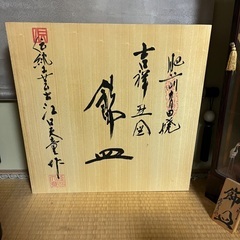 肥前有田焼
吉祥
飾皿
伝統工芸士 江口天童 作
飾皿